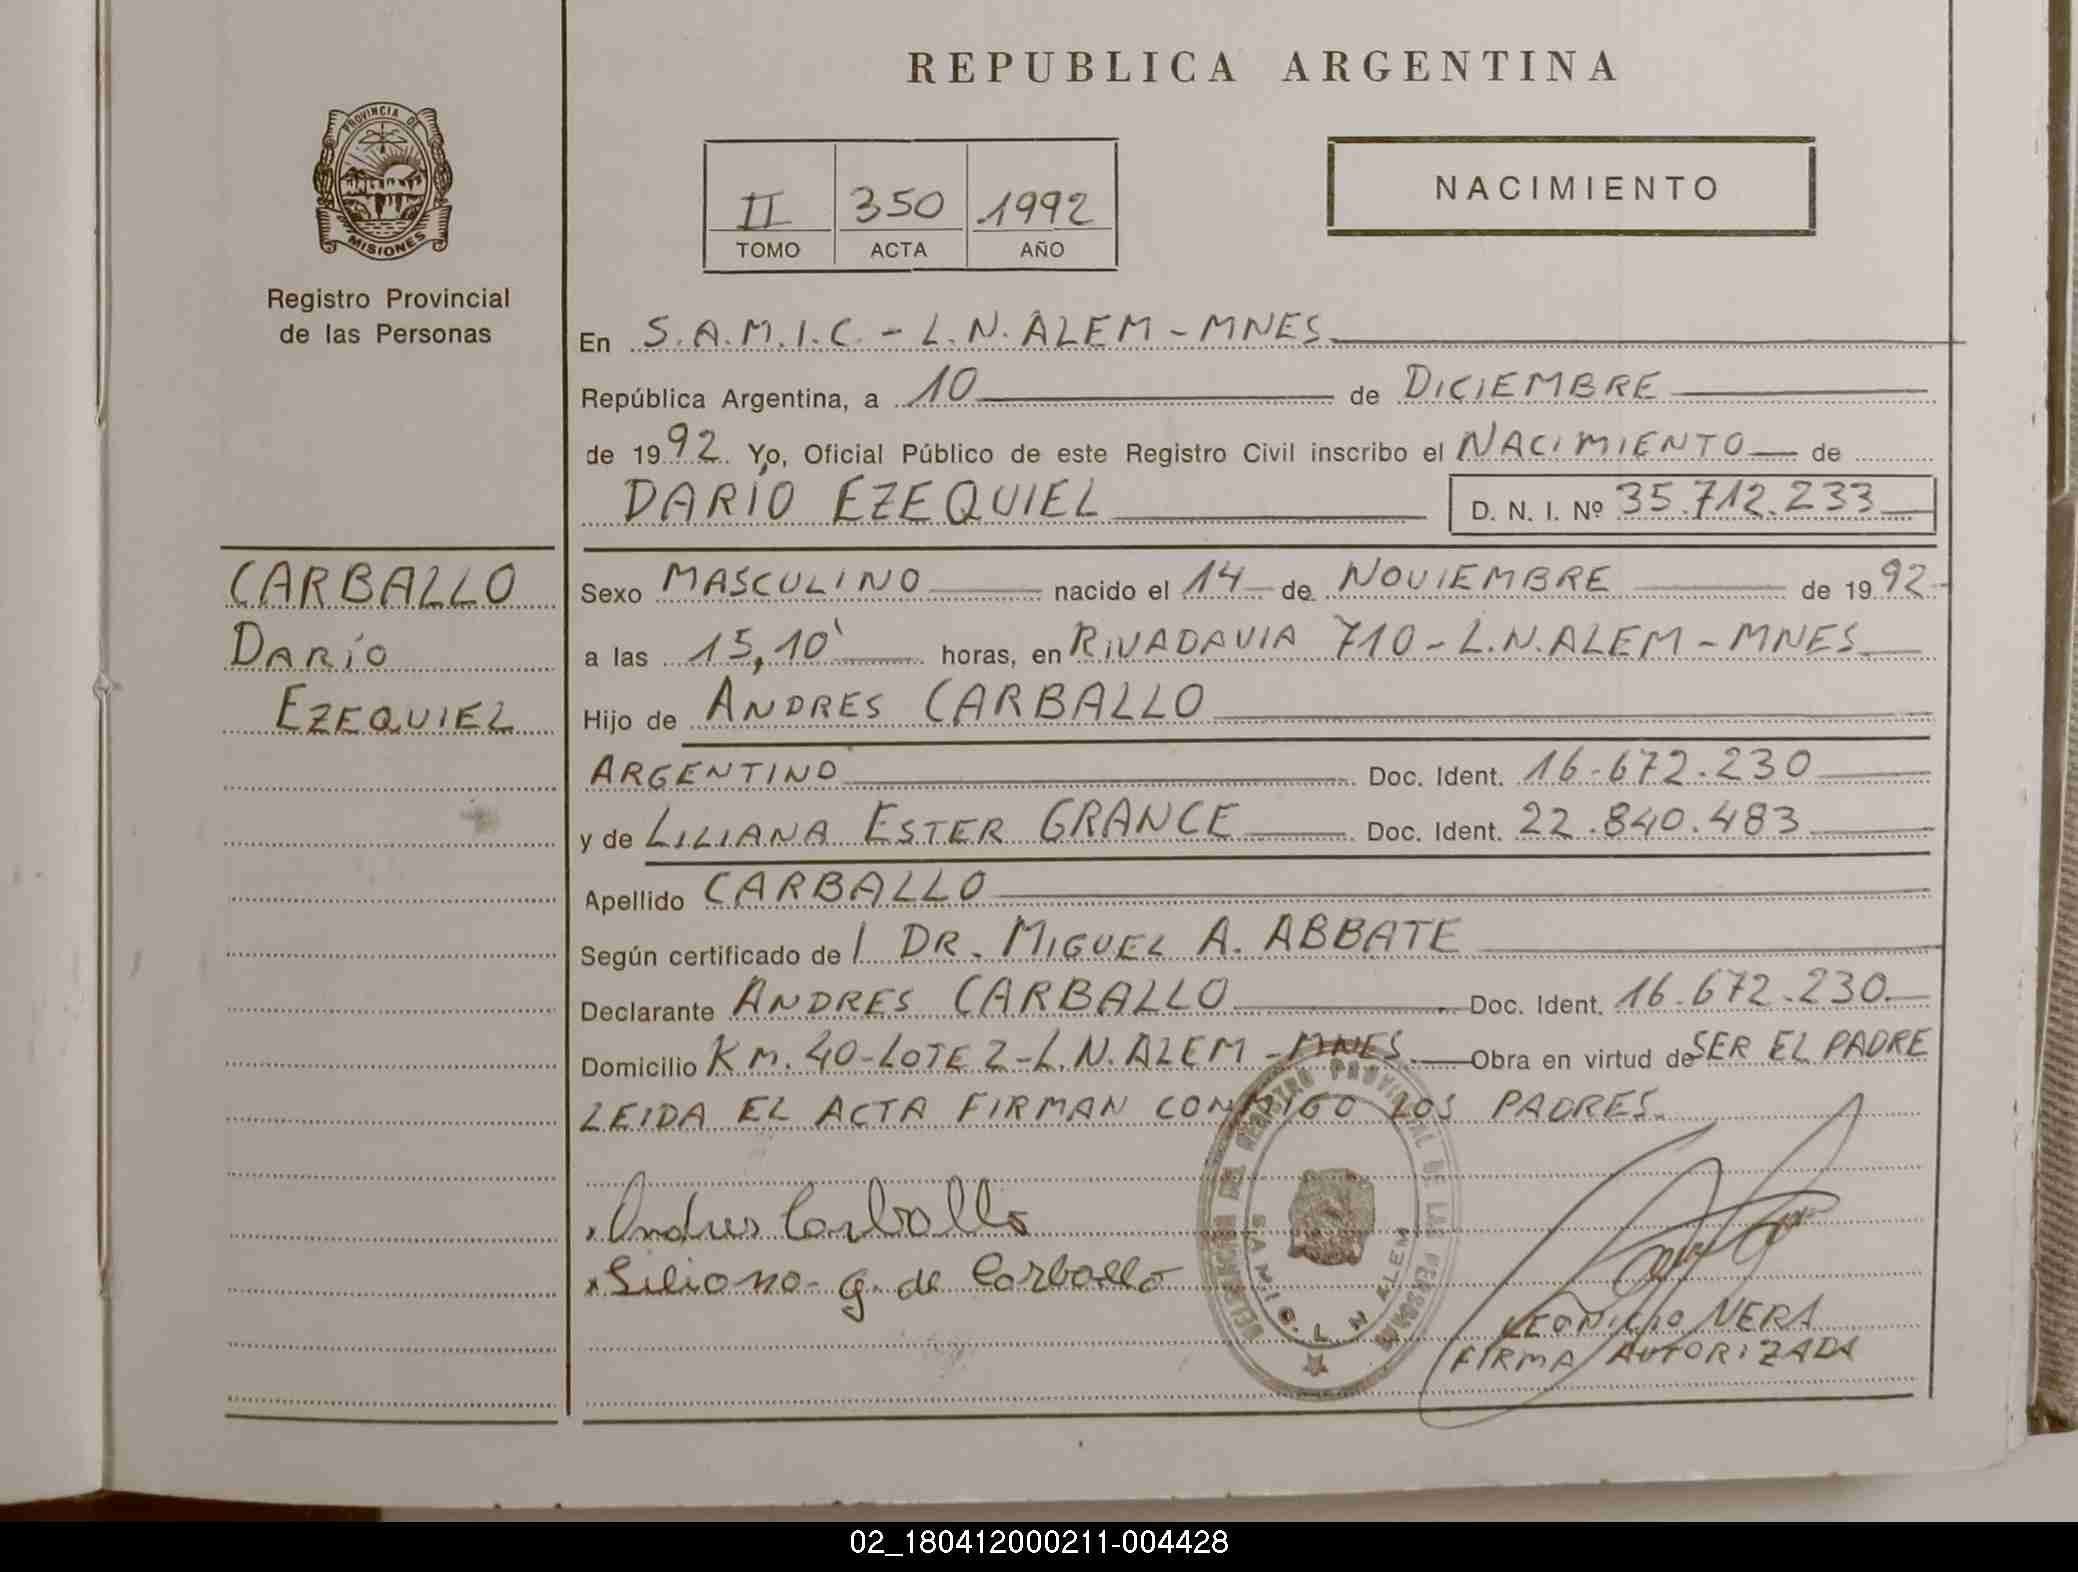 REPUBLICA ARGENTINA
PROVINCIA DE
MISIONES
Registro Provincial
de las Personas
II 350 1992
TOMO ACTA AÑO
NACIMIENTO
En S.A.M.I.C. - L.N. ALEM - MNES
República Argentina, a 10 de DICIEMBRE
de 1992. Yo, Oficial Público de este Registro Civil inscribo el NACIMIENTO de
DARÍO EZEQUIEL D. N. I. Nº 35.712.233
CARBALLO
DARÍO
EZEQUIEL
Sexo MASCULINO nacido el 14 de NOVIEMBRE de 1992
a las 15,10' horas, en RIVADAVIA 710 - L.N. ALEM - MNES
Hijo de ANDRES CARBALLO
ARGENTINO Doc. Ident. 16.672.230
y de LILIANA ESTER GRANCE Doc. Ident. 22.840.483
Apellido CARBALLO
Según certificado de l DR. MIGUEL A. ABBATE
Declarante ANDRES CARBALLO Doc. Ident. 16.672.230
Domicilio KM. 40 - LOTE 2 - L.N. ALEM - MNES. Obra en virtud de SER EL PADRE
LEIDA EL ACTA FIRMAN CONMIGO LOS PADRES.
Andres Carballo
Liliana G. de Carballo
DEL REGISTRO PROVINCIAL DE LAS PERSONAS
S.A.M.I.C. L N ALEM
NERA
FIRMA AUTORIZADA
02_180412000211-004428